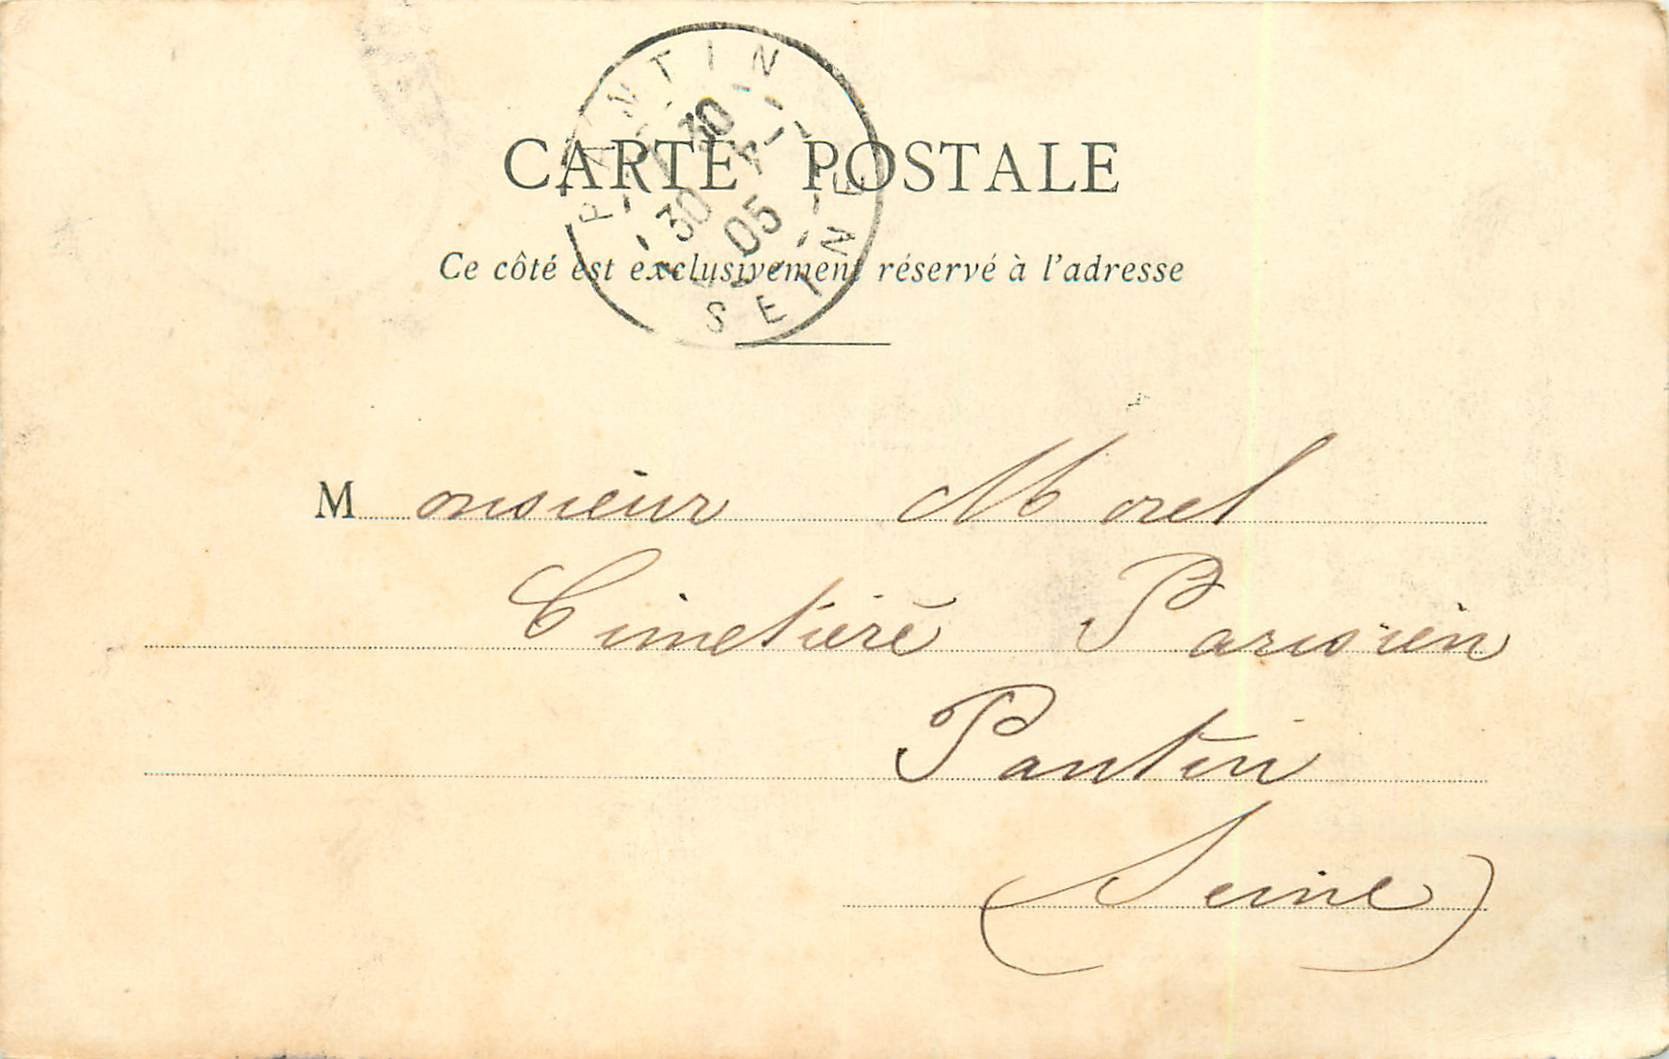 PANTIN
1 30
30 -4
05
SEINE
CARTE POSTALE
Ce côté est exclusivement réservé à l'adresse
Monsieur Morel
Cimetière Parisien
Pantin
(Seine)